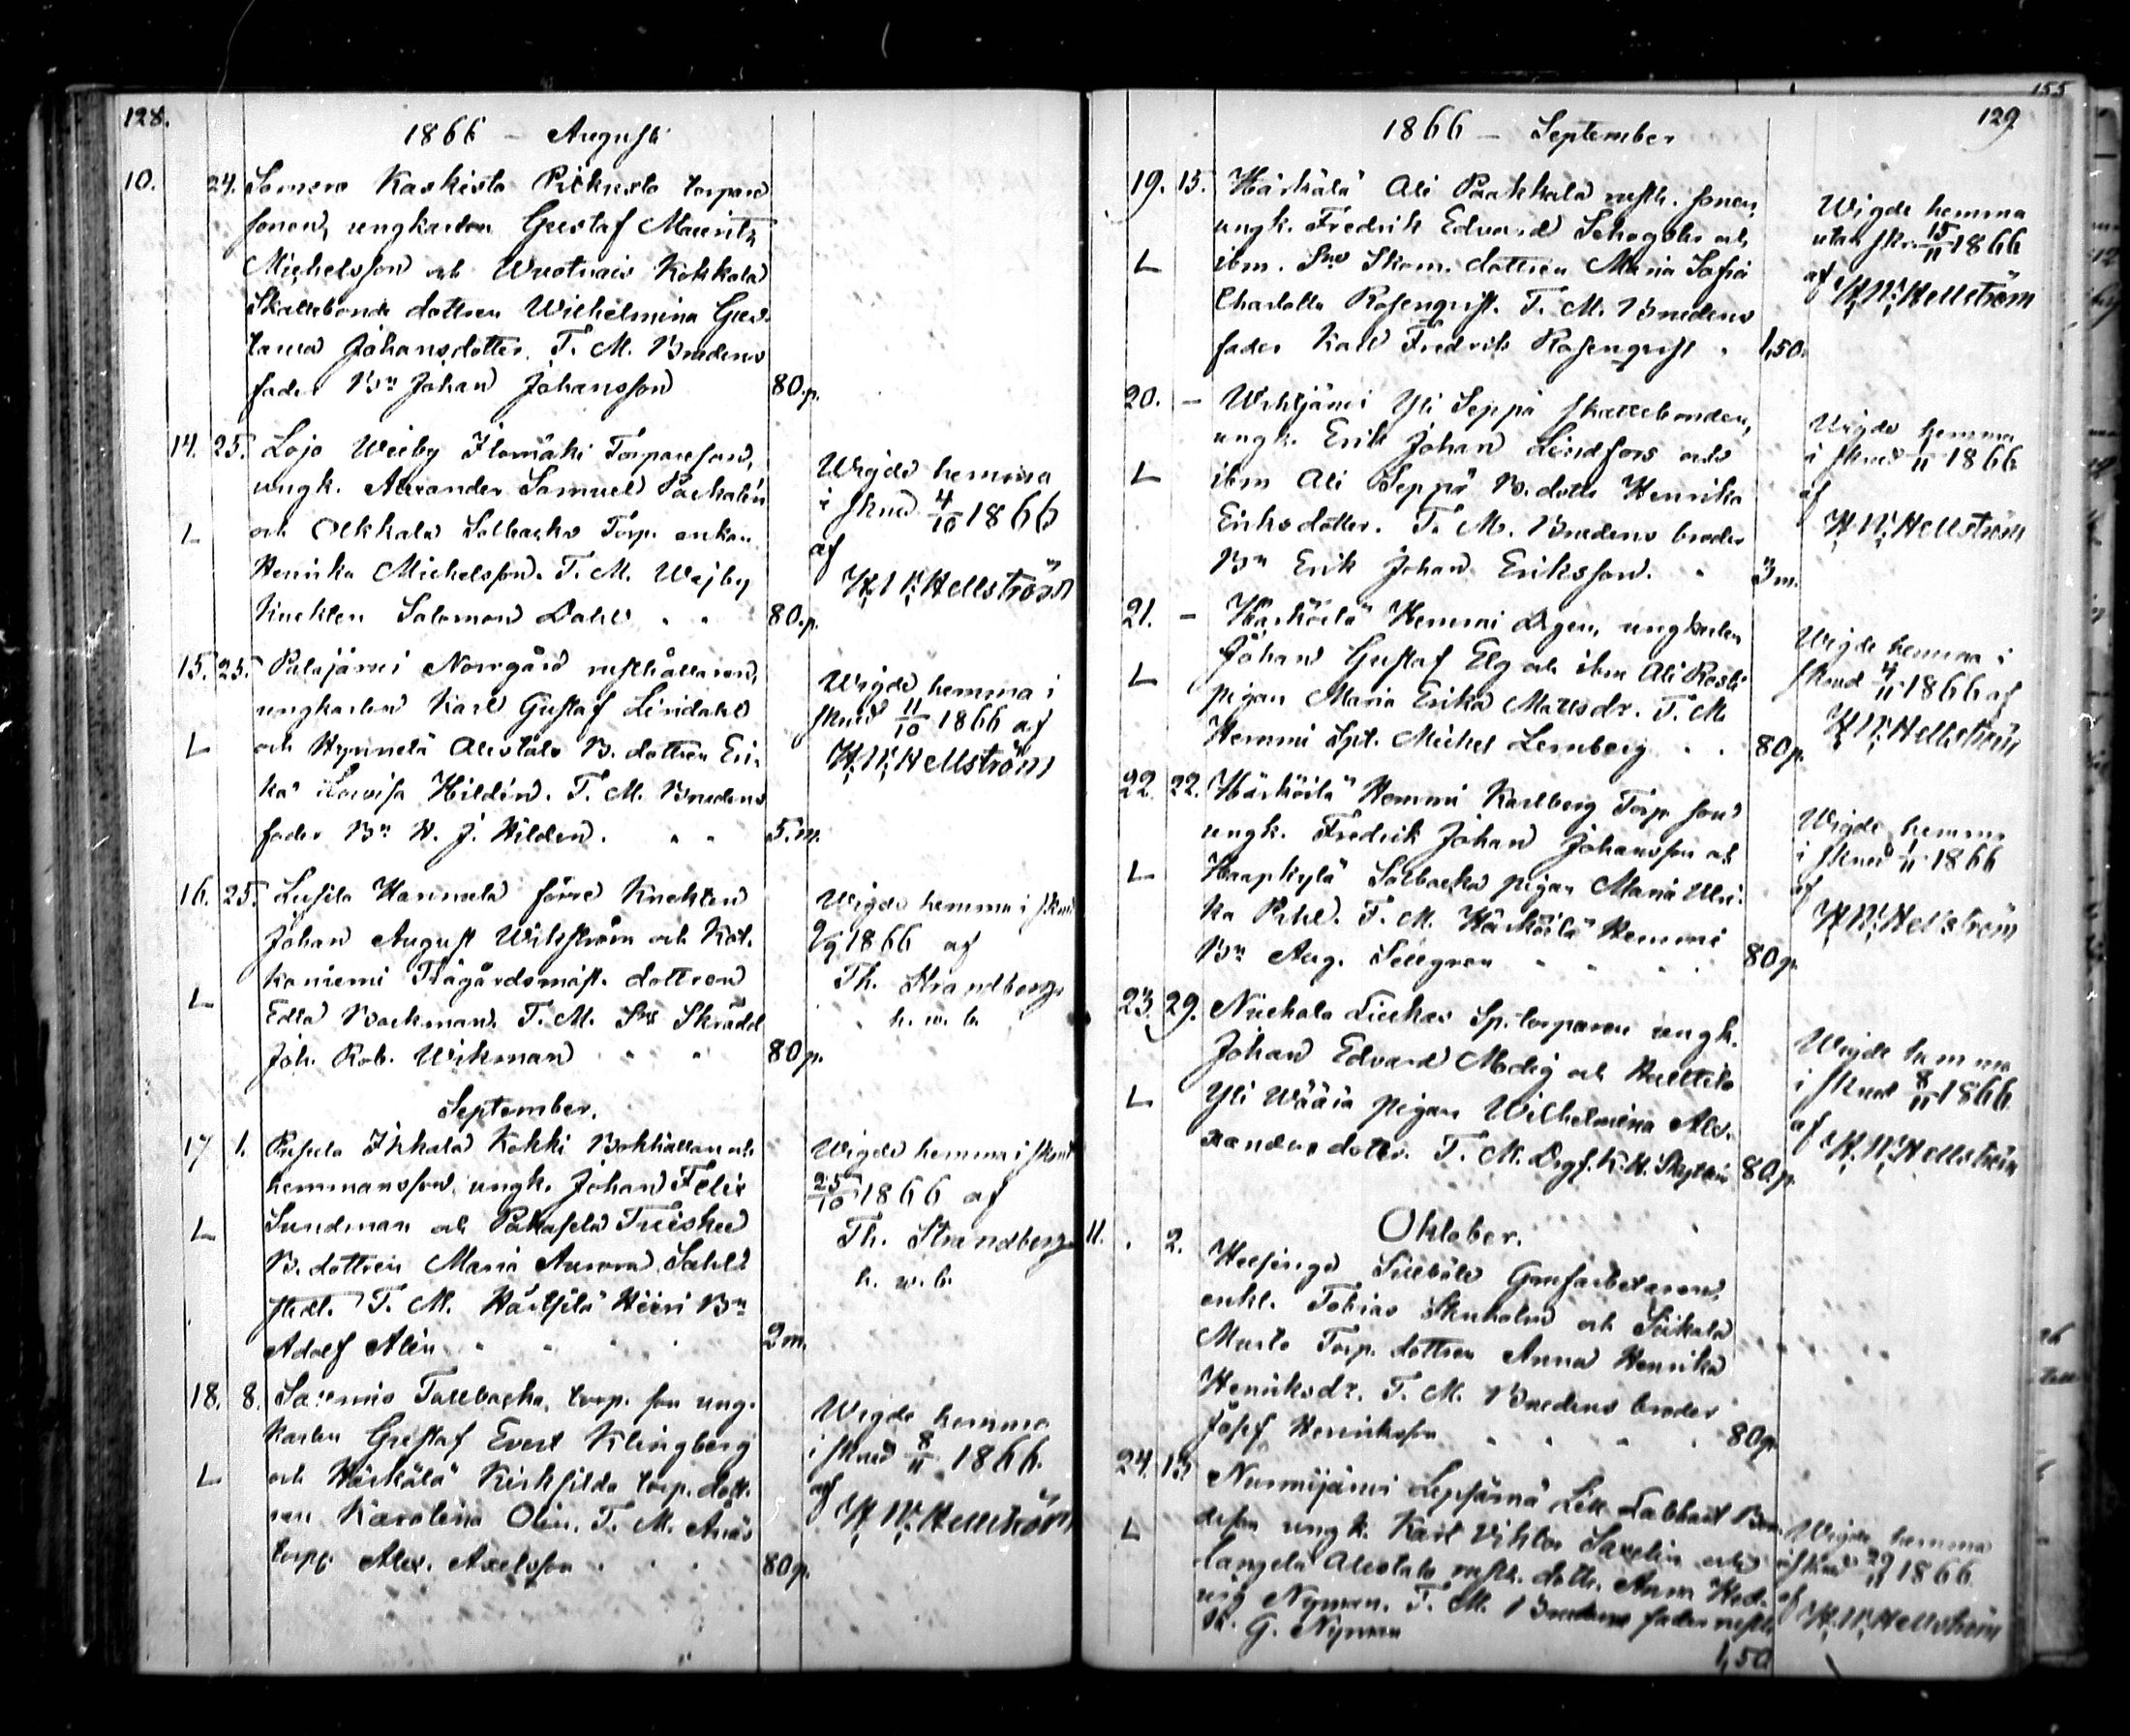 128.
1866 – Augusti
10. 24. Somero Kaskisto Pitkästo torpare
sonen, ungkarlen Gustaf Mauritz
Michelsson och Wuotnais Kokkala
Skattebonde dottren Wilhelmina Gus-
tava Johansdotter. T. M. Brudens
fader Bn Johan Johansson 80.p.
14. 25. Lojo Weiby Ilomäki Torpareson,
ungk. Alexander Samuel
L och Olkkala Solbacka Torp. enkan
Henrika Michelsson. T. M. Wejby
Knekten Salomon Dahl " " 80.p.
Wigde hemma
i sknd 4/10 1866
af
H. W. Hellström
15. 25. Pulajärvi Norrgård rusthållaren,
ungkarlen Karl Gustaf Lindahl
L och Hynnelä Alestalo B. dottren Eri-
ka Lovisa Hildén. T. M. Brudens
fader Bn H. J. Hilden. " " 5.m.
Wigde hemma i
sknd 11/10 1866 af
H. W. Hellström
16. 25. Lusila Hannula förre Knekten
Johan August Wikström och Kot-
kaniemi Trägårdsmäst. dottren
L Edla Backman. T. M. Sne Skrädd
Joh. Rob. Wikman " " 80p.
Wigde hemma i sknd
9/9 1866 af
Th. Strandberg
h. w. b.
September.
17 1. Pusula Ikkala Kokki Bokhållaren och
hemmansson, ungk. Johan Felix
L Sundman och Pakasela Treiskeä
B. dottren Maria Aurora Sahl-
stedt. T. M. Härtsilä Heiri Bn
Adolf Alén " " " 2m.
Wigde hemma i sknd
25/10 1866 af
Th. Strandberg
h. w. b.
18. 8. Tallbacka, torp. son ung-
karlen Gustaf Evert Klingberg
L och Härkälä Kirksilda torp. dott-
ren Karolina Olin. T. M. Anäs
torpp. Alex. Axelsson " " " 80p.
Wigde hemma
i sknd 8/11 1866.
af
H. W. Hellström
155
129
1866 – September
19. 15. Härkälä Ali Paakkala rusth. sonen,
ungk. Fredrik Edvard och
L ibm. Sne Skom. dottren Maria Sofia
Charlotta Rosenqvist. T. M. Brudens
fader Karl Fredrik Rosenqvist " 1,50.
Wigde hemma
utan skn. 15/11 1866
af
H. W. Hellström
20. – Wihtjärvi Yli Seppä skattebonden,
ungk. Erik Johan Lindfors och
L ibm Ali Seppä B. dottr Henrika
Eriksdotter. T. M. Brudens broder
Bn Erik Johan Eriksson. " 3m.
Wigde hemma
i sknd 1/11 1866
af
H. W. Hellström
21. – Härköilä Hemmi Drgen, ungkarlen
Johan Gustaf Elg och ibm Ali Rosti
L pigan Maria Erika Mattsdr. T. M.
Hemmi Spt. Michel Lemberg " " 80p.
Wigde hemma i
sknd 4/11 1866 af
H. W. Hellström
22. 22. Härköilä Hemmi Karlberg Torp. son
ungk. Fredrik Johan Johansson och
L Haapkylä Solbacka pigan Maria Ulri-
ka Pihl. T. M. Härköilä Hemmi
Bn Aug. Sellgren " " " 80p.
Wigde hemma
i sknd 1/11 1866
af
H. W. Hellström
23. 29. Niuhala Liukas Sp. torparen ungk.
Johan Edvard Modig och Hulttila
L Yli Wääri pigan Wilhelmina Alex-
andersdotter. T. M. 80p.
Wigde hemma
i sknd 8/11 1866
af
H. W. Hellström
Oktober.
11. 2. Helsinge Sillböle Grufarbetaren,
enkl. Tobias Skuholm och Siikala
Musto Torp. dottren Anna Henrika
Henriksdr. T. M. Brudens broder
Josef Henriksson " " " 80p
24. 13 Nurmijärvi Lepsämä Lill Labbart Bon-
deson ungk. Karl Viktor Saxelin och
L Tangela Alestalo rusth. dottr. Anna Hed-
vig Nyman. T. M. Brudens fader rusth.
K. G. Nyman 1,50
Wigde hemma
i sknd 29/11 1866
af
H. W. Hellström